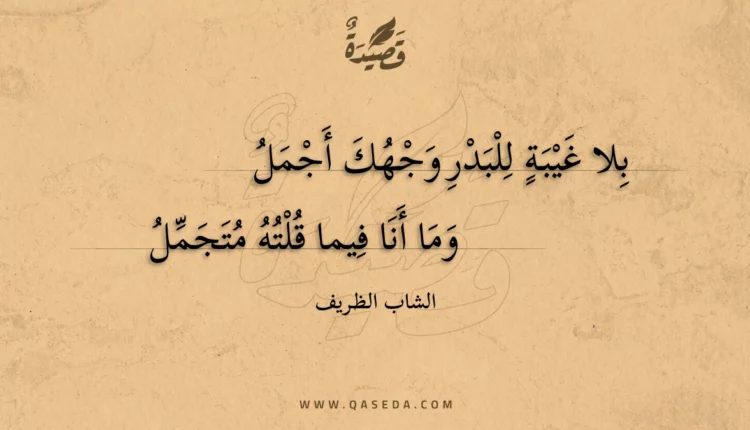 قَصِيْدَةٌ
بِلا غَيْبَةٍ لِلْبَدْرِ وَجْهُكَ أَجْمَلُ
وَمَا أَنَا فِيما قُلْتُهُ مُتَجَمِّلُ
الشاب الظريف
WWW.QASEDA.COM